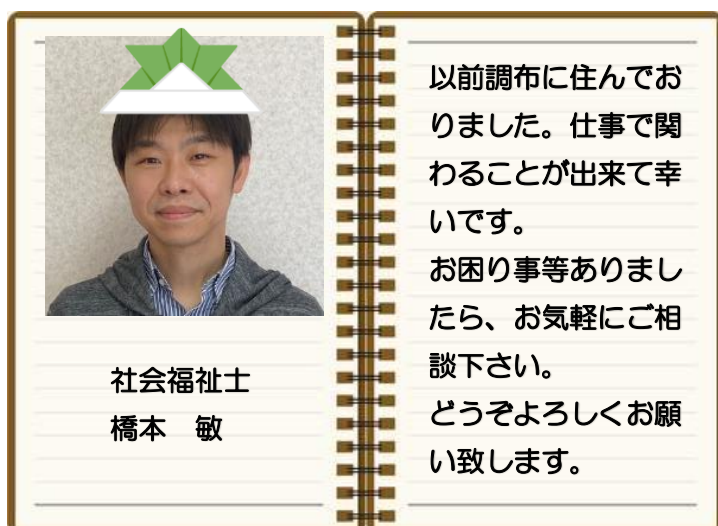 社会福祉士
橋本　敏
以前調布に住んでお
りました。仕事で関
わることが出来て幸
いです。
お困り事等ありまし
たら、お気軽にご相
談下さい。
どうぞよろしくお願
い致します。